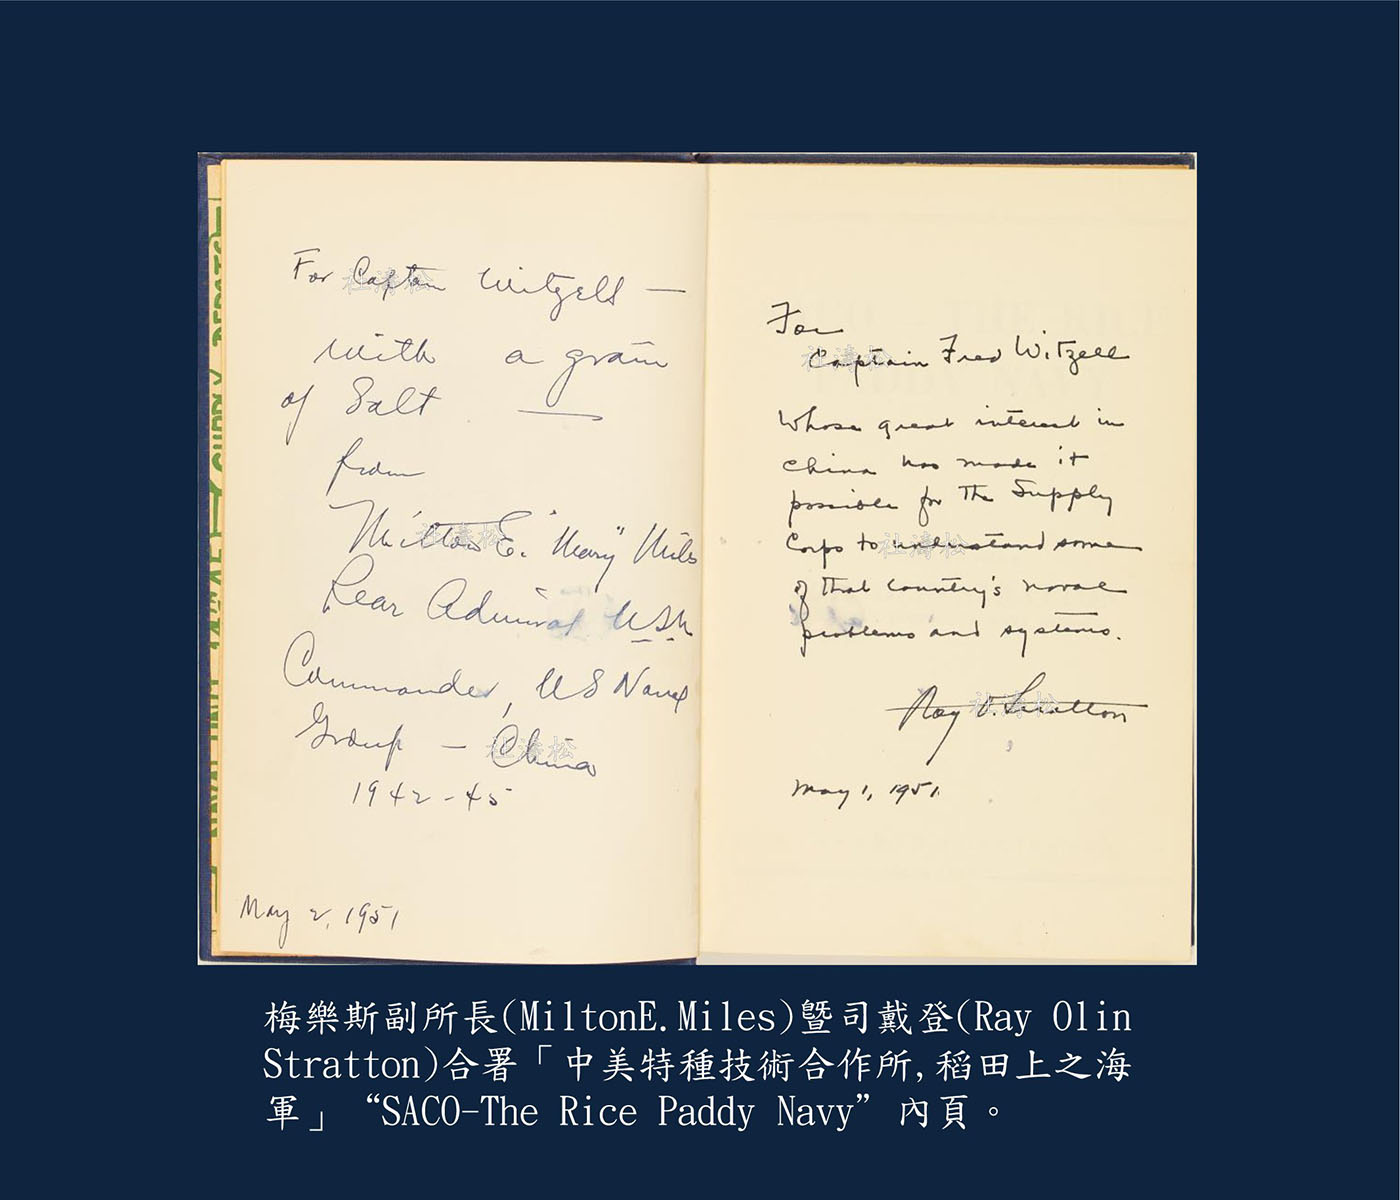 For Captain Witzell —
with a grain
of Salt —
from
Milton E. "Mary" Miles
Rear Admiral USN
Commander, US Naval
Group — China
1942-45
May 2, 1951
For
Captain Fred Witzell
Whose great interest in
China has made it
possible for the Supply
Corps to understand some
of that country's naval
problems and systems.
Ray O. Stratton
May 1, 1951.
杜濤松
杜濤松
杜濤松
杜濤松
杜濤松
杜濤松
梅樂斯副所長(MiltonE.Miles)暨司戴登(Ray Olin
Stratton)合署「中美特種技術合作所,稻田上之海
軍」“SACO-The Rice Paddy Navy”內頁。